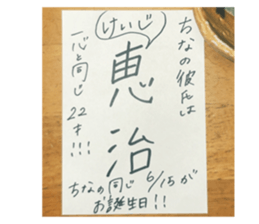 ちなの彼氏は
けいじ
恵治
一心と同じ
22才!!!
ちなの同じ6/15が
お誕生日!!